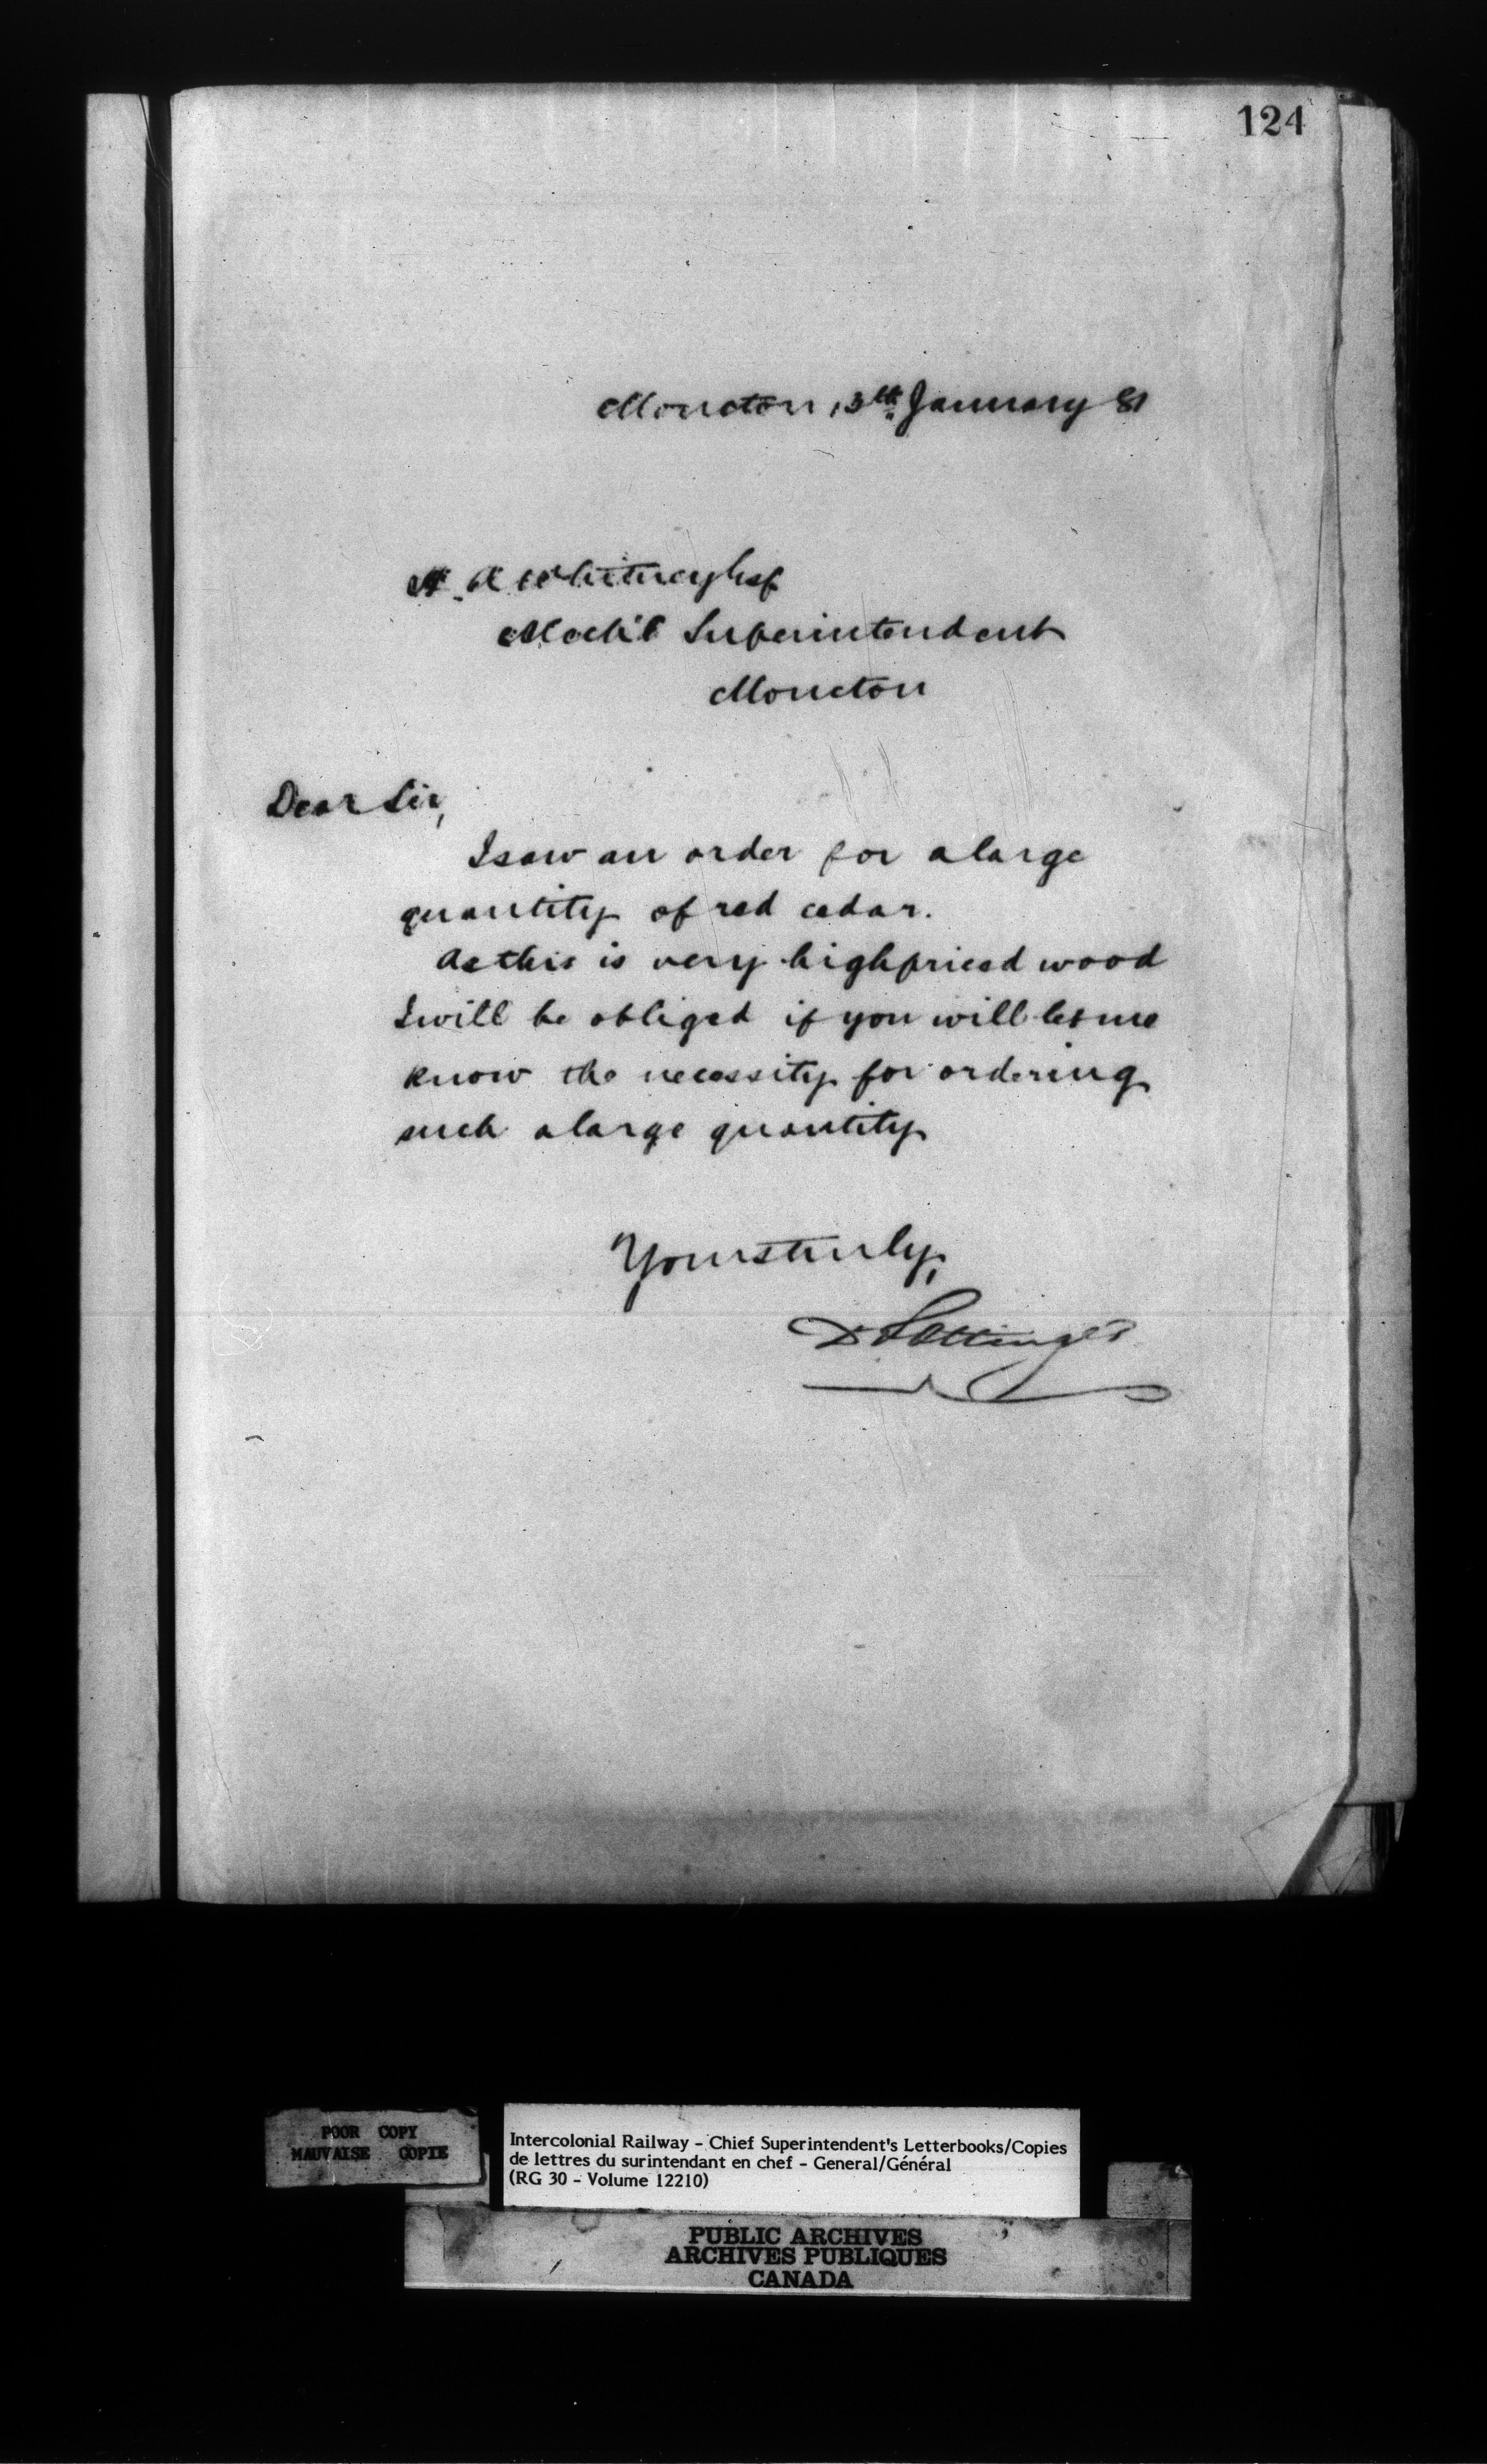 124
Moncton 13th January 81
H. A Whitney Esq
Mech'l Superintendent
Moncton
Dear Sir,
I saw an order for a large
quantity of red cedar.
As this is very high priced wood
I will be obliged if you will let me
know the necessity for ordering
such a large quantity
Yours truly,
D Pottinger
POOR COPY
MAUVAISE COPIE
Intercolonial Railway - Chief Superintendent's Letterbooks/Copies
de lettres du surintendant en chef - General/Général
(RG 30 - Volume 12210)
PUBLIC ARCHIVES
ARCHIVES PUBLIQUES
CANADA